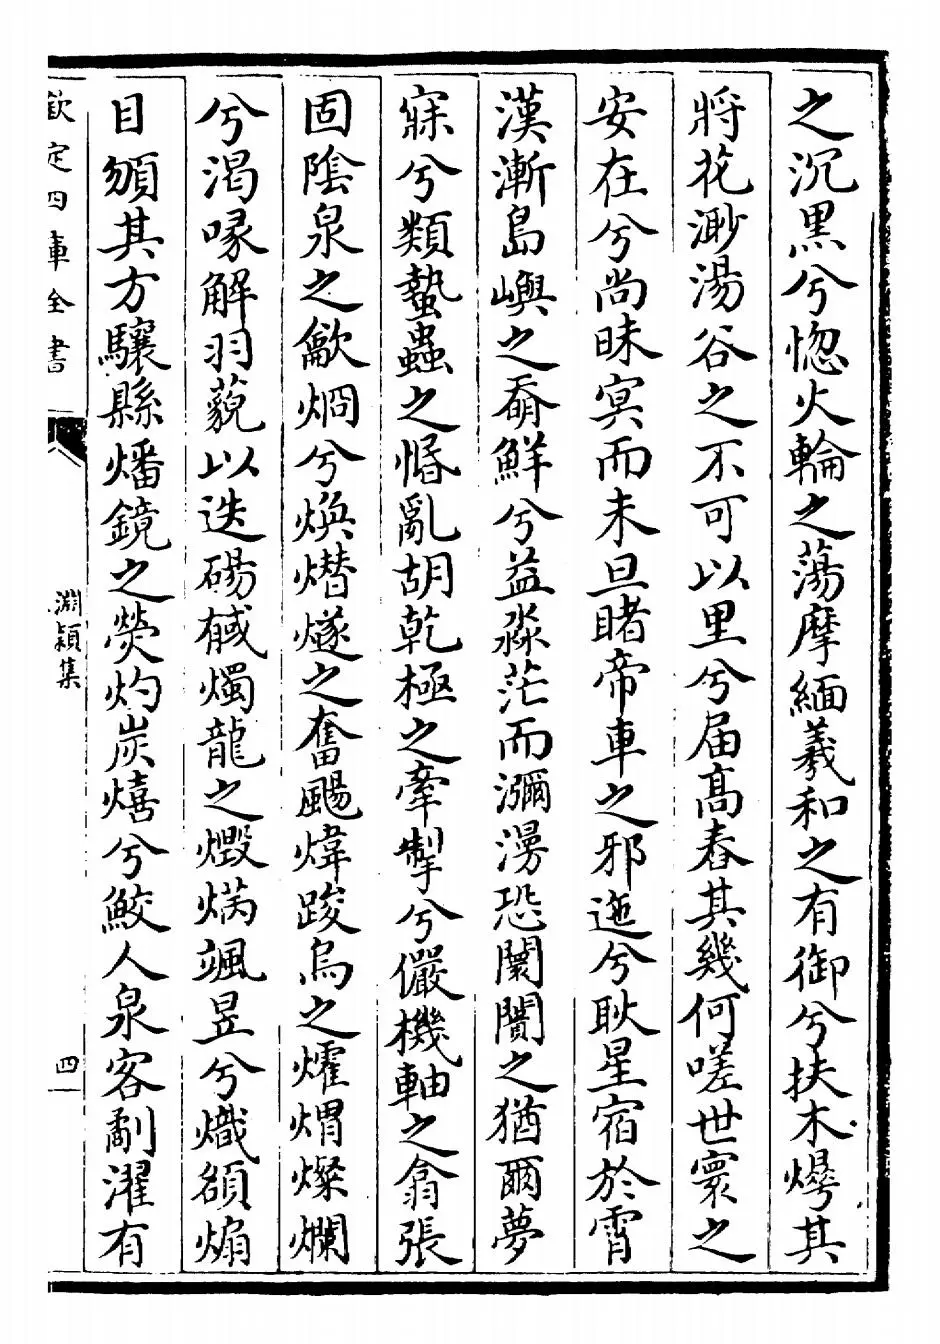 之沉黒兮惚火輪之蕩摩緬羲和之有御兮扶木燁其
將花渺湯谷之不可以里兮届髙舂其幾何嗟世寰之
安在兮尚昧冥而未旦睹帝車之邪迤兮耿星宿於霄
漢漸島嶼之奫鮮兮益淼茫而瀰漫恐闤闠之猶爾夢
寐兮類蟄蟲之惛亂胡乾極之牽掣兮儼機軸之翕張
固陰泉之歙烱兮煥熸燧之奮颺煒踆烏之爟焆燦爛
兮渴喙解羽藐以迭碭戫燭龍之燬焫颯昱兮熾頟煽
目頒其方驤縣燔鏡之熒灼炭熺兮鮫人泉客劀濯有
欽定四庫全書
淵穎集
四